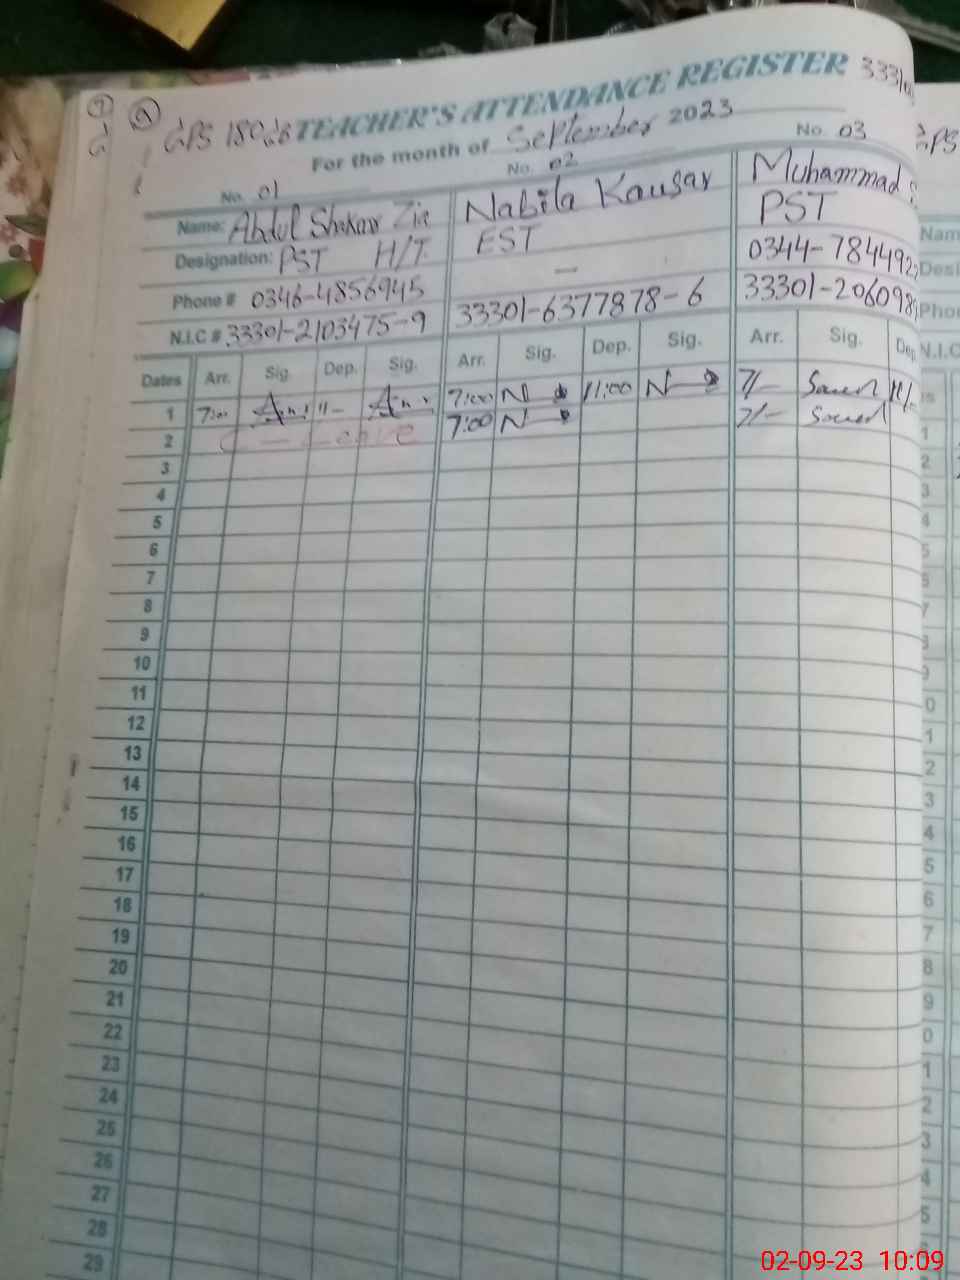 GPS 180 GB TEACHER'S ATTENDANCE REGISTER
For the month of September 2023
No. 01 No. 02 No. 03
Name: Abdul Shakoor Zia Nabila Kousar Muhammad
Designation: PST H/T EST PST
Phone # 0346-4856945 — 0344-784492
N.I.C # 33301-2103475-9 33301-6377878-6 33301-206098
Dates Arr. Sig. Dep. Sig. Arr. Sig. Dep. Sig. Arr. Sig. Dep.
1 7:00 11- 7:00 N 11:00 N 7/- 11/-
2 Leave 7:00 N 7/-
3
4
5
6
7
8
9
10
11
12
13
14
15
16
17
18
19
20
21
22
23
24
25
26
27
28
29
GPS
Name
Desi
Phon
N.I.C
02-09-23 10:09